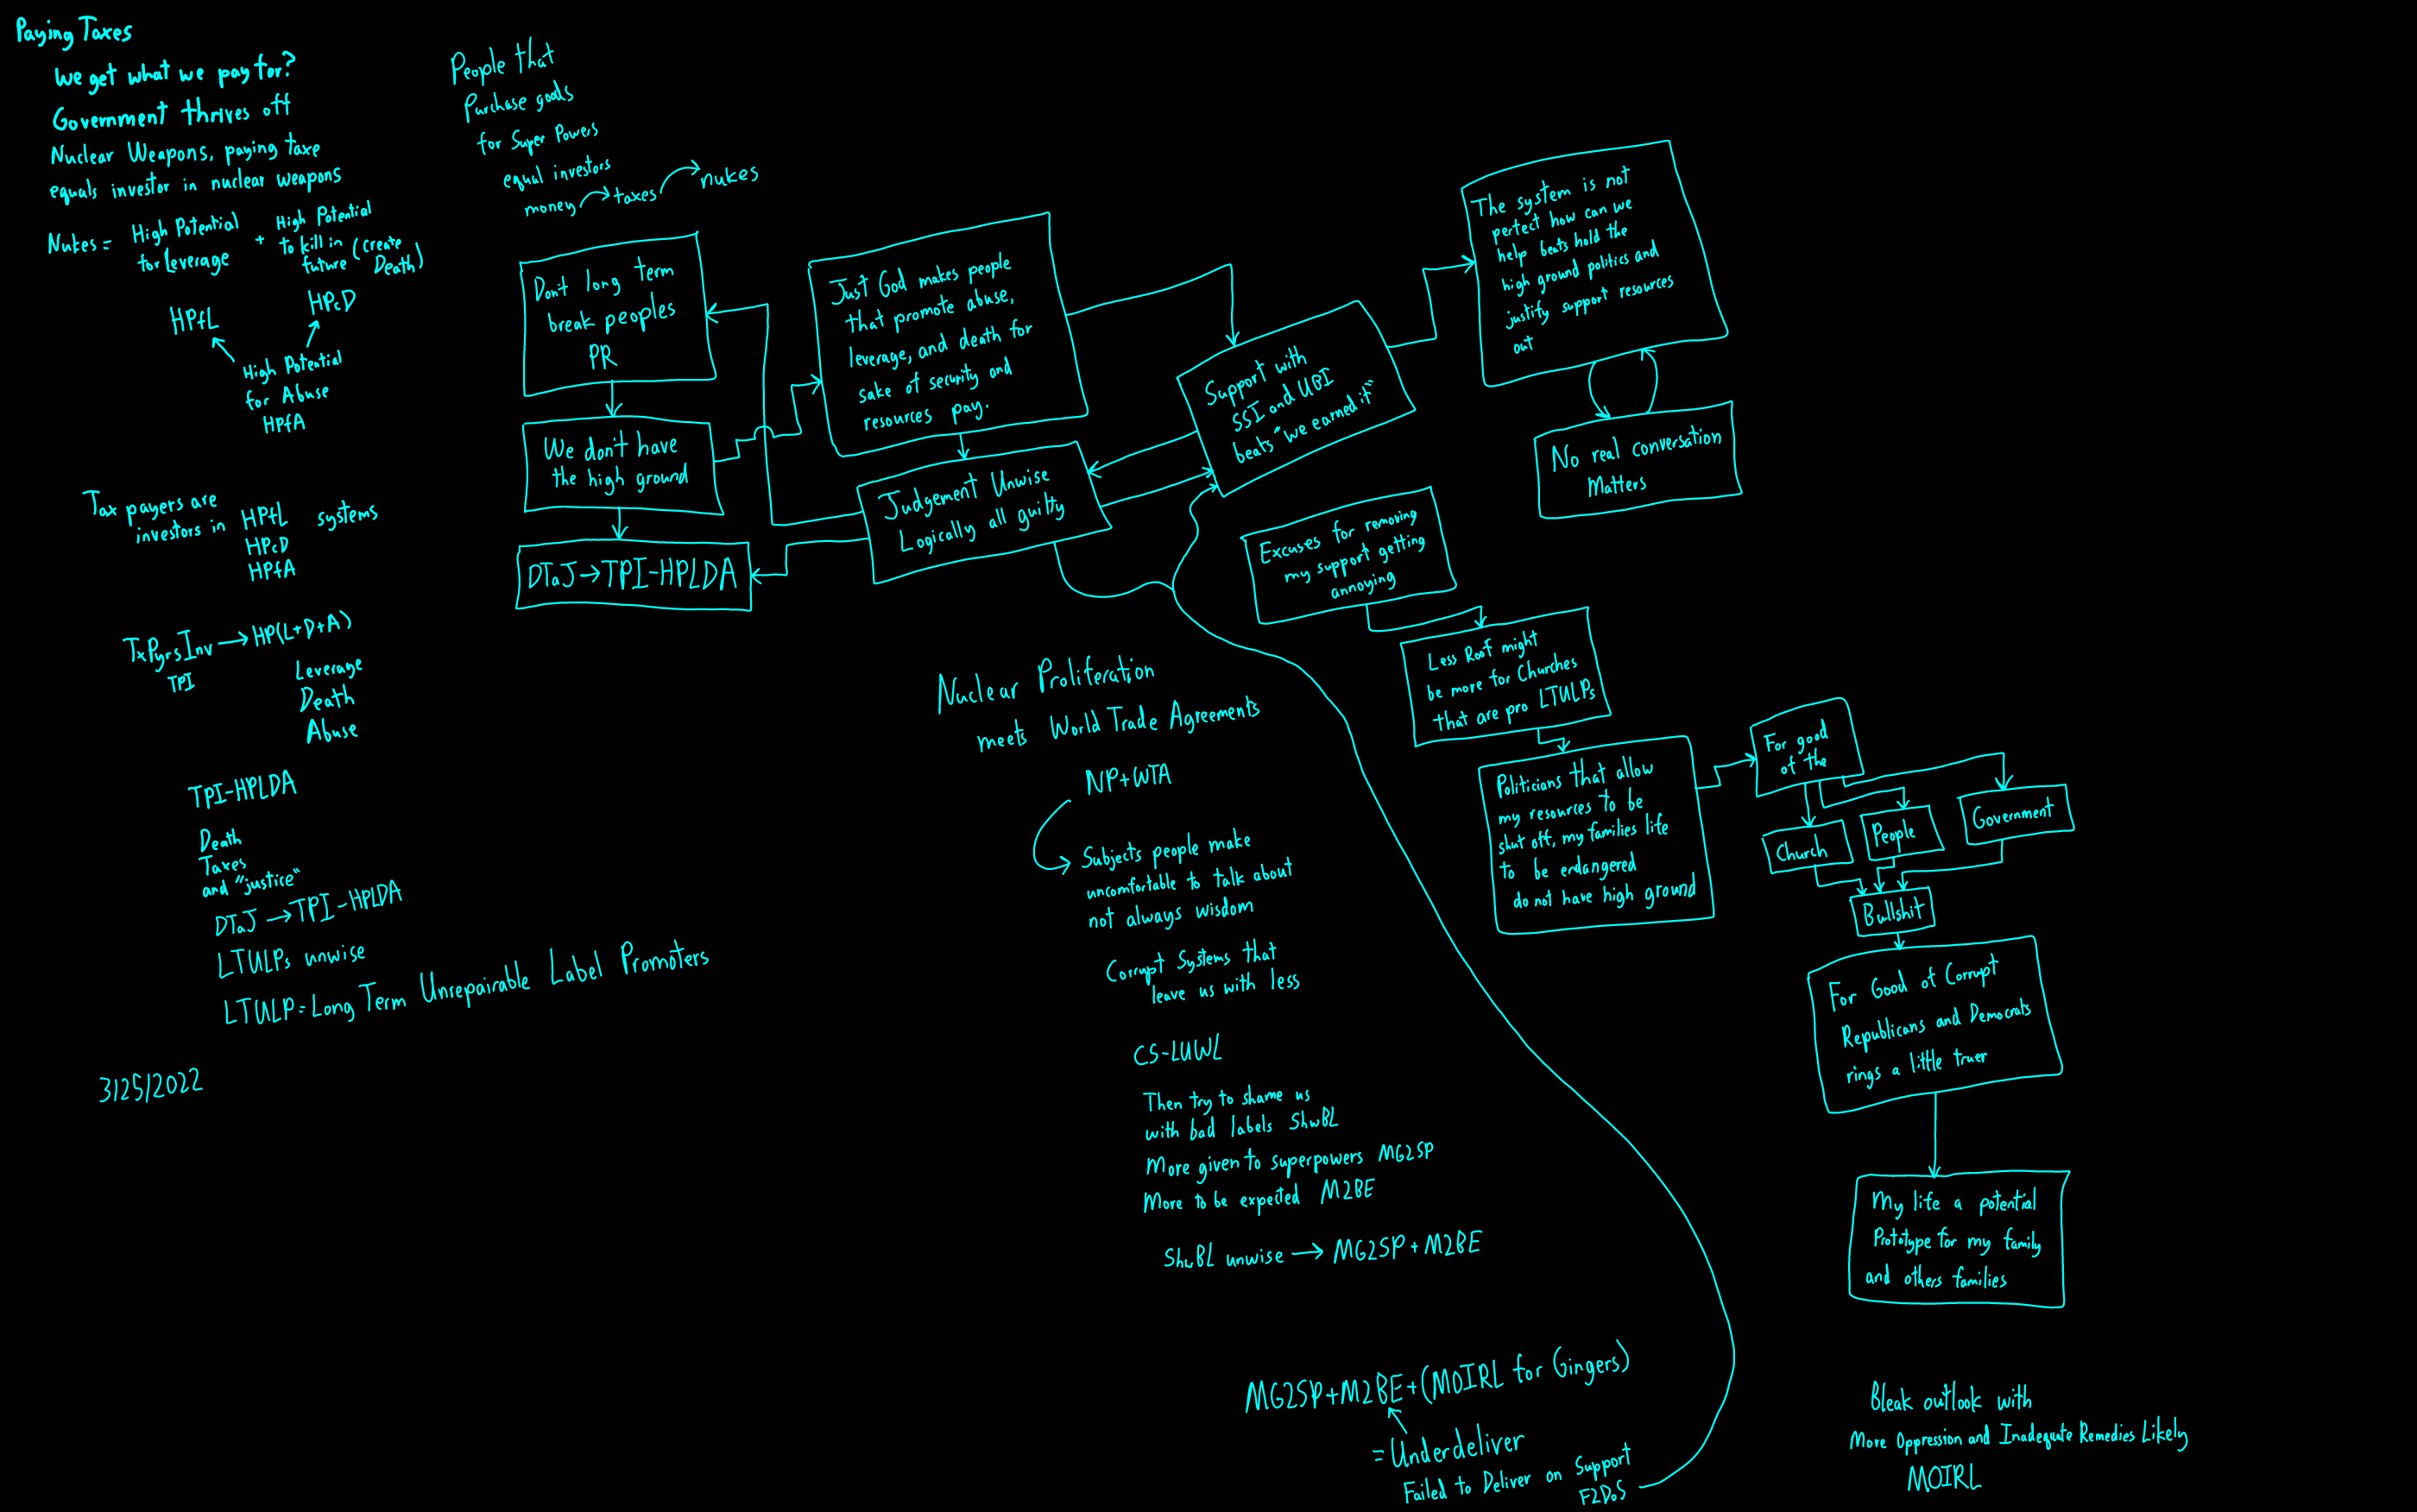 Paying Taxes
We get what we pay for?
Government thrives off
Nuclear Weapons, paying taxe
equals investor in nuclear weapons
Nukes = High Potential for Leverage + High Potential to kill in future (create Death)
HPfL
HPcD
High Potential
for Abuse
HPfA
Tax payers are
investors in HPfL systems
HPcD
HPfA
TxPyrsInv → HP(L+D+A)
TPI
Leverage
Death
Abuse
TPI-HPLDA
Death
Taxes
and "justice"
DTaJ → TPI-HPLDA
LTULPs unwise
LTULP = Long Term Unrepairable Label Promoters
3/25/2022
People that
Purchase goods
for Super Powers
equal investors
money → taxes → nukes
Don't long term
break peoples
PR
We don't have
the high ground
DTaJ → TPI-HPLDA
Just God makes people
that promote abuse,
leverage, and death for
sake of security and
resources pay.
Judgement Unwise
Logically all guilty
Support with
SSI and UBI
beats "we earned it"
The system is not
perfect how can we
help beats hold the
high ground politics and
justify support resources
out
No real conversation
Matters
Excuses for removing
my support getting
annoying
Less Roof might
be more for Churches
that are pro LTULPs
Politicians that allow
my resources to be
shut off, my families life
to be endangered
do not have high ground
For good
of the
Church
People
Government
Bullshit
For Good of Corrupt
Republicans and Democrats
rings a little truer
My life a potential
Prototype for my family
and others families
Nuclear Proliferation
meets World Trade Agreements
NP+WTA
Subjects people make
uncomfortable to talk about
not always wisdom
Corrupt Systems that
leave us with less
CS-LUWL
Then try to shame us
with bad labels ShwBL
More given to superpowers MG2SP
More to be expected M2BE
ShwBL unwise → MG2SP + M2BE
MG2SP+M2BE+(MOIRL for Gingers)
= Underdeliver
Failed to Deliver on Support
F2DoS
Bleak outlook with
More Oppression and Inadequate Remedies Likely
MOIRL